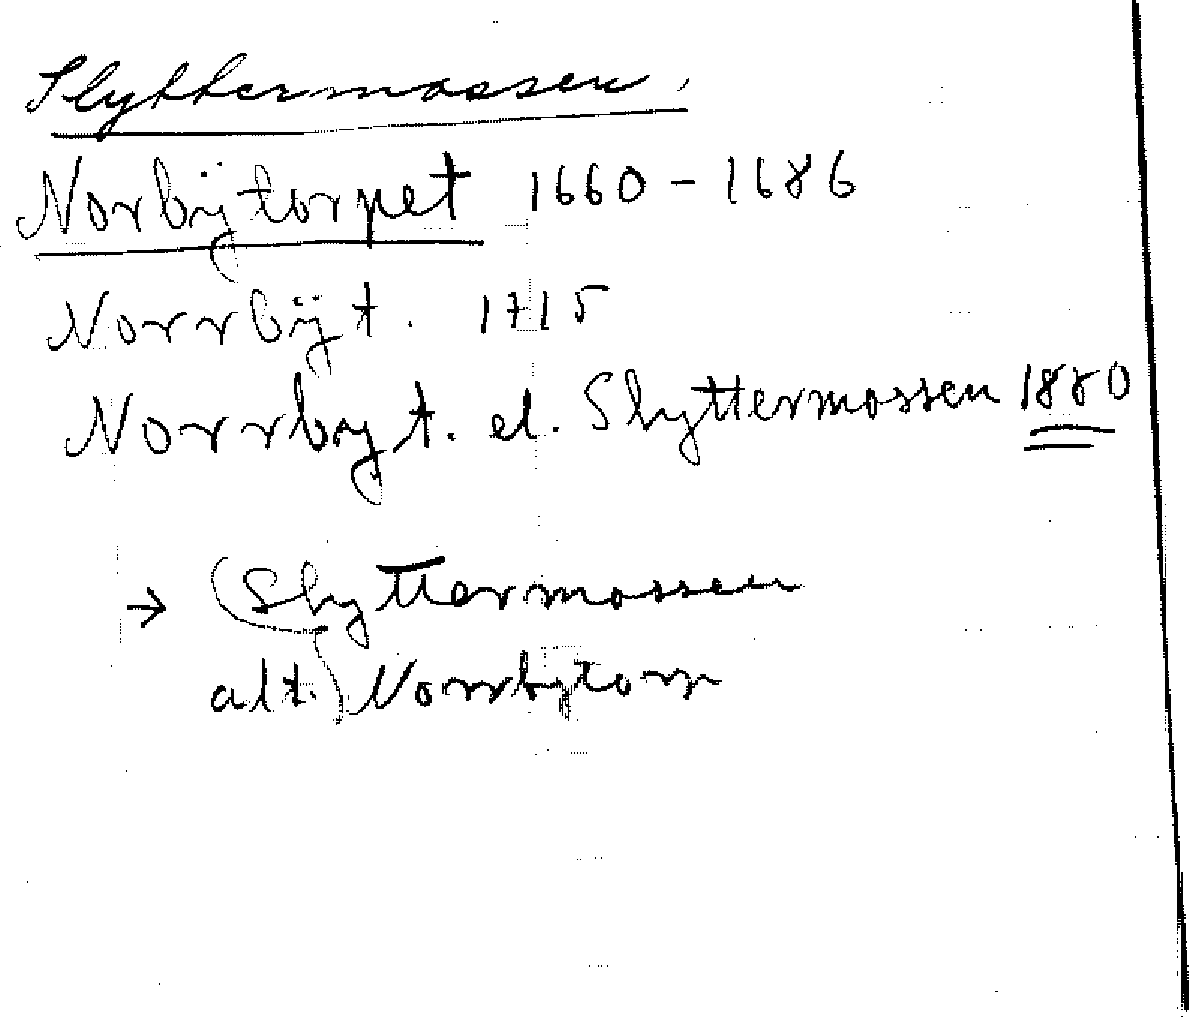 Slyttermossen.
Norbÿtorpet 1660-1686
Norrbÿt. 1715
Norrbyt. el. Slyttermossen 1880
→ (Slyttermossen
alt.) Norrbytorp